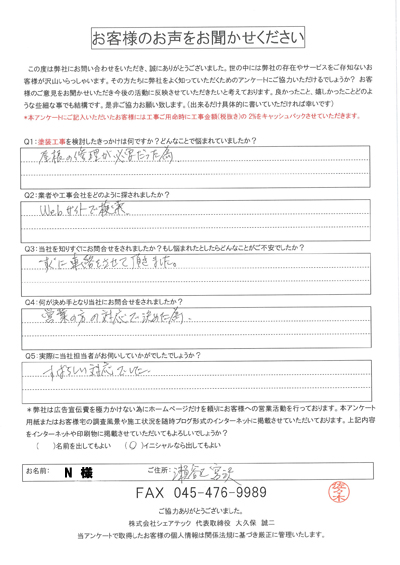 お客様のお声をお聞かせください
この度は弊社にお問い合わせをいただき、誠にありがとうございました。世の中には弊社の存在やサービスをご存知ないお
客様が沢山いらっしゃいます。その方たちに弊社をよく知っていただくためのアンケートにご協力いただけるでしょうか？ お客
様のご意見をお聞かせいただき今後の活動に反映させていただきたいと考えております。良かったこと、嬉しかったことどのよ
うな些細な事でも結構です。是非ご協力お願い致します。（出来るだけ具体的に書いていただければ幸いです）
*本アンケートにご記入いただいたお客様には工事ご用命時に工事金額（税抜き）の 2%をキャッシュバックさせていただきます。
Q1：塗装工事を検討したきっかけは何ですか？どんなことで悩まれていましたか？
屋根の修理が必要だった為
Q2：業者や工事会社をどのように探されましたか？
Webサイトで検索
Q3：当社を知りすぐにお問合せをされましたか？もし悩まれたとしたらどんなことがご不安でしたか？
すぐに連絡をさせて頂きました。
Q4：何が決め手となり当社にお問合せをされましたか？
営業の方の対応で決めた為。
Q5：実際に当社担当者がお伺いしていかがでしたでしょうか？
すばらしい対応でした。
*弊社は広告宣伝費を極力かけない為にホームページだけを頼りにお客様への営業活動を行っております。本アンケート
用紙またはお客様宅の調査風景や施工状況を随時ブログ形式のインターネットに掲載させていただいております。上記内容
をインターネットや印刷物に掲載させていただいてもよろしいでしょうか？
（　）名前を出してもよい　（○）イニシャルなら出してもよい
お名前： N 様 ご住所： 瀬谷区宮沢
FAX 045-476-9989
佐々木
ご協力ありがとうございました。
株式会社シェアテック 代表取締役 大久保 誠二
当アンケートで取得したお客様の個人情報は関係法規に基づき厳正に管理いたします。